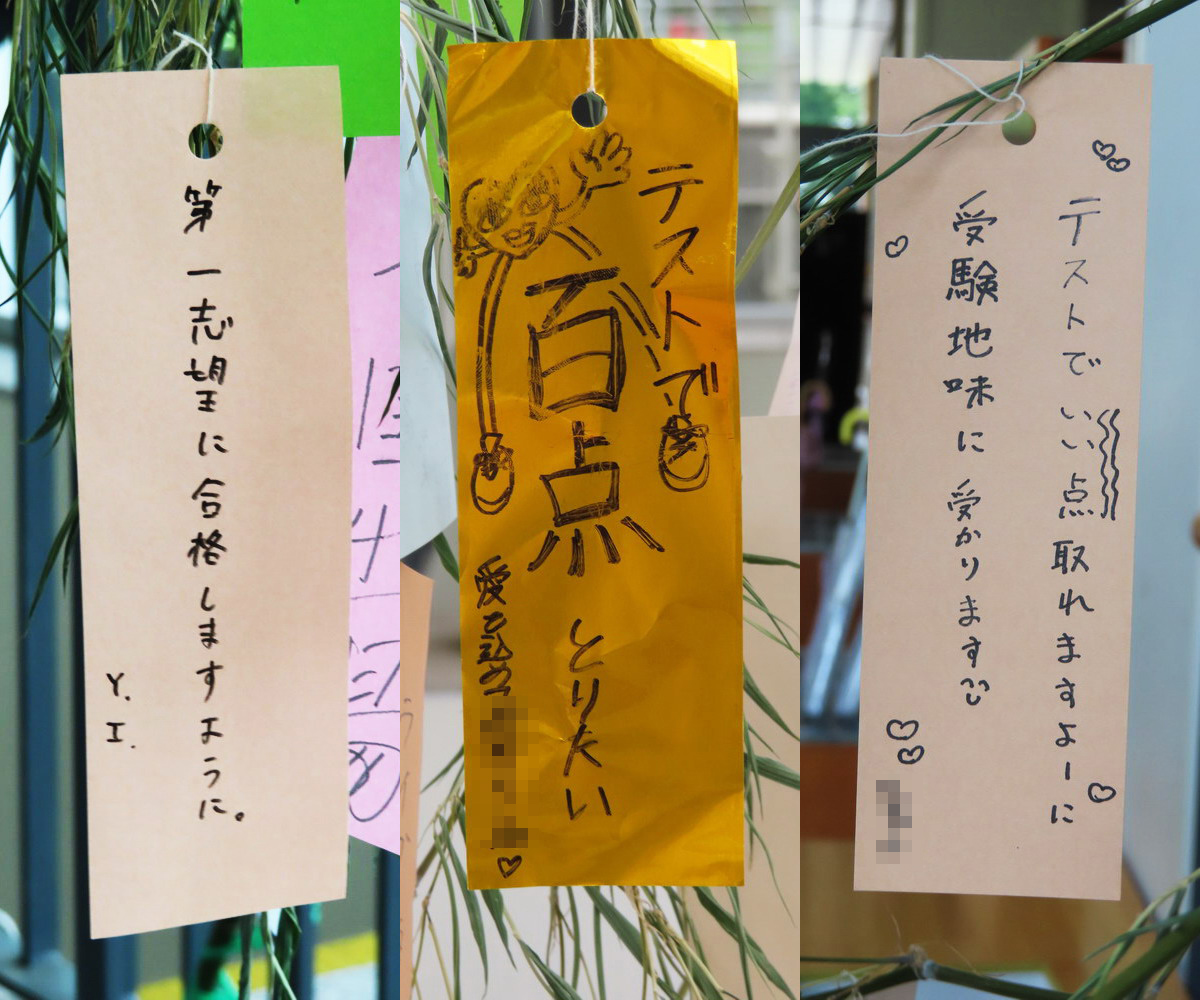 第一志望に合格しますように。
Y.I.
テストで
百点とりたい
愛を込めて
テストでいい点取れますよーに
受験地味に受かります